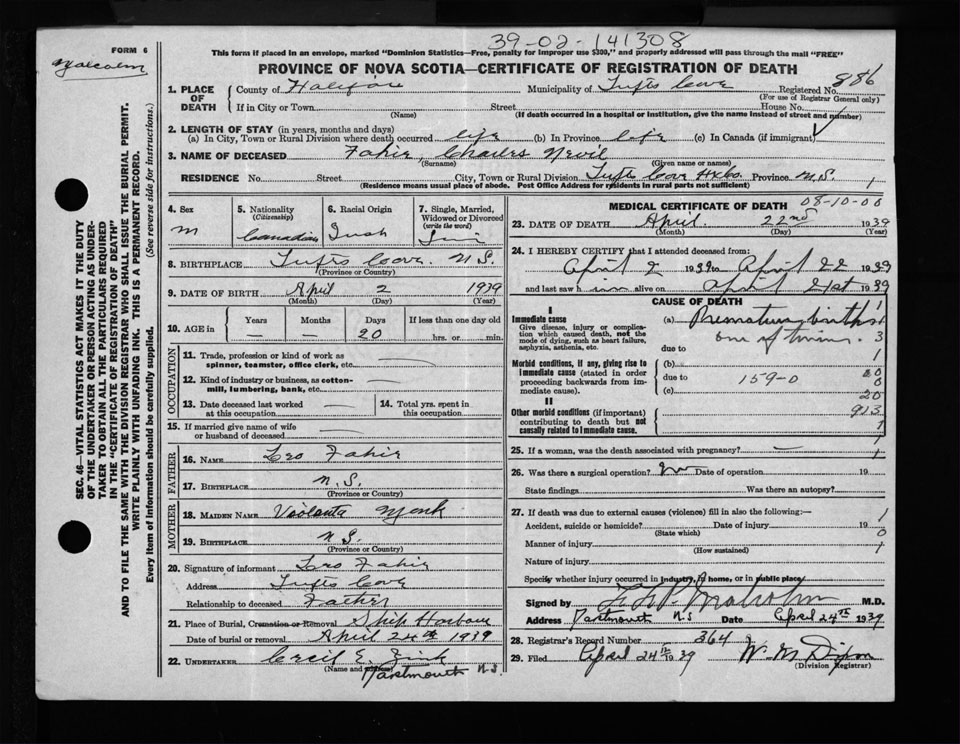 39-02-141308
FORM 6
Malcolm
This form if placed in an envelope, marked "Dominion Statistics—Free, penalty for improper use $300," and properly addressed will pass through the mail "FREE"
PROVINCE OF NOVA SCOTIA—CERTIFICATE OF REGISTRATION OF DEATH
1. PLACE OF DEATH
County of Halifax Municipality of Tufts Cove Registered No. 886
(For use of Registrar General only)
If in City or Town Street House No.
(Name) (If death occurred in a hospital or institution, give the name instead of street and number)
2. LENGTH OF STAY (in years, months and days)
(a) In City, Town or Rural Division where death occurred life (b) In Province life (c) In Canada (if immigrant)
3. NAME OF DECEASED Fahie, Charles Nevil
(Surname) (Given name or names)
RESIDENCE No. Street City, Town or Rural Division Tufts Cove Hfx Co. Province N.S. 1
(Residence means usual place of abode. Post Office Address for residents in rural parts not sufficient)
4. Sex
M
5. Nationality
(Citizenship)
Canadian
6. Racial Origin
Irish
7. Single, Married, Widowed or Divorced
(write the word)
8. BIRTHPLACE Tufts Cove. N.S.
(Province or Country)
9. DATE OF BIRTH April 2 1939
(Month) (Day) (Year)
10. AGE in
Years Months Days If less than one day old
— — 20 hrs. or min.
OCCUPATION
11. Trade, profession or kind of work as spinner, teamster, office clerk, etc. —
12. Kind of industry or business, as cotton-mill, lumbering, bank, etc. —
13. Date deceased last worked at this occupation —
14. Total yrs. spent in this occupation
15. If married give name of wife or husband of deceased —
FATHER
16. NAME Leo Fahie
17. BIRTHPLACE N.S.
(Province or Country)
MOTHER
18. MAIDEN NAME Violenta Monk
19. BIRTHPLACE N.S.
(Province or Country)
20. Signature of informant Leo Fahie
Address Tufts Cove
Relationship to deceased Father
21. Place of Burial, Cremation or Removal Ship Harbour
Date of burial or removal April 24th 1939
22. UNDERTAKER Cecil E. Zink
(Name and address)
Dartmouth N.S.
MEDICAL CERTIFICATE OF DEATH 08-10-00
23. DATE OF DEATH April 22nd 1939
(Month) (Day) (Year)
24. I HEREBY CERTIFY that I attended deceased from:
April 2 1939 to April 22 1939
and last saw him alive on April 21st 1939
CAUSE OF DEATH
I
Immediate cause
Give disease, injury or complication which caused death, not the mode of dying, such as heart failure, asphyxia, asthenia, etc.
(a) Premature births 1
one of twins. 3
due to
Morbid conditions, if any, giving rise to immediate cause (stated in order proceeding backwards from immediate cause).
(b) 1
due to 159-0
(c)
20
II
Other morbid conditions (if important) contributing to death but not causally related to immediate cause.
913
1
25. If a woman, was the death associated with pregnancy? — 1
26. Was there a surgical operation? No Date of operation 19
State findings Was there an autopsy?
27. If death was due to external causes (violence) fill in also the following:— 1
Accident, suicide or homicide? Date of injury 19 0
(State which)
Manner of injury 1
(How sustained)
Nature of injury
Specify whether injury occurred in industry, in home, or in public place
Signed by Malcolm M.D.
Address Dartmouth N.S Date April 24th 1939
28. Registrar's Record Number 364
29. Filed April 24th 1939 W. M. Dixon
(Division Registrar)
SEC. 46—VITAL STATISTICS ACT MAKES IT THE DUTY
OF THE UNDERTAKER OR PERSON ACTING AS UNDER-
TAKER TO OBTAIN ALL THE PARTICULARS REQUIRED
IN THE "CERTIFICATE OF REGISTRATION OF DEATH"
AND TO FILE THE SAME WITH THE DIVISION REGISTRAR WHO SHALL ISSUE THE BURIAL PERMIT.
WRITE PLAINLY WITH UNFADING INK. THIS IS A PERMANENT RECORD.
Every item of information should be carefully supplied. (See reverse side for instructions.)